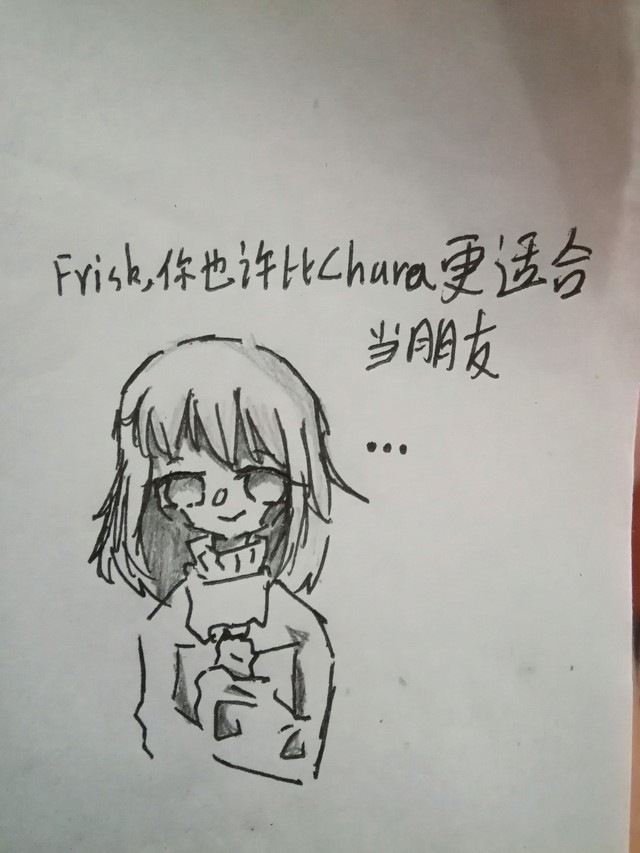 Frisk,你也许比Chara更适合
当朋友
...